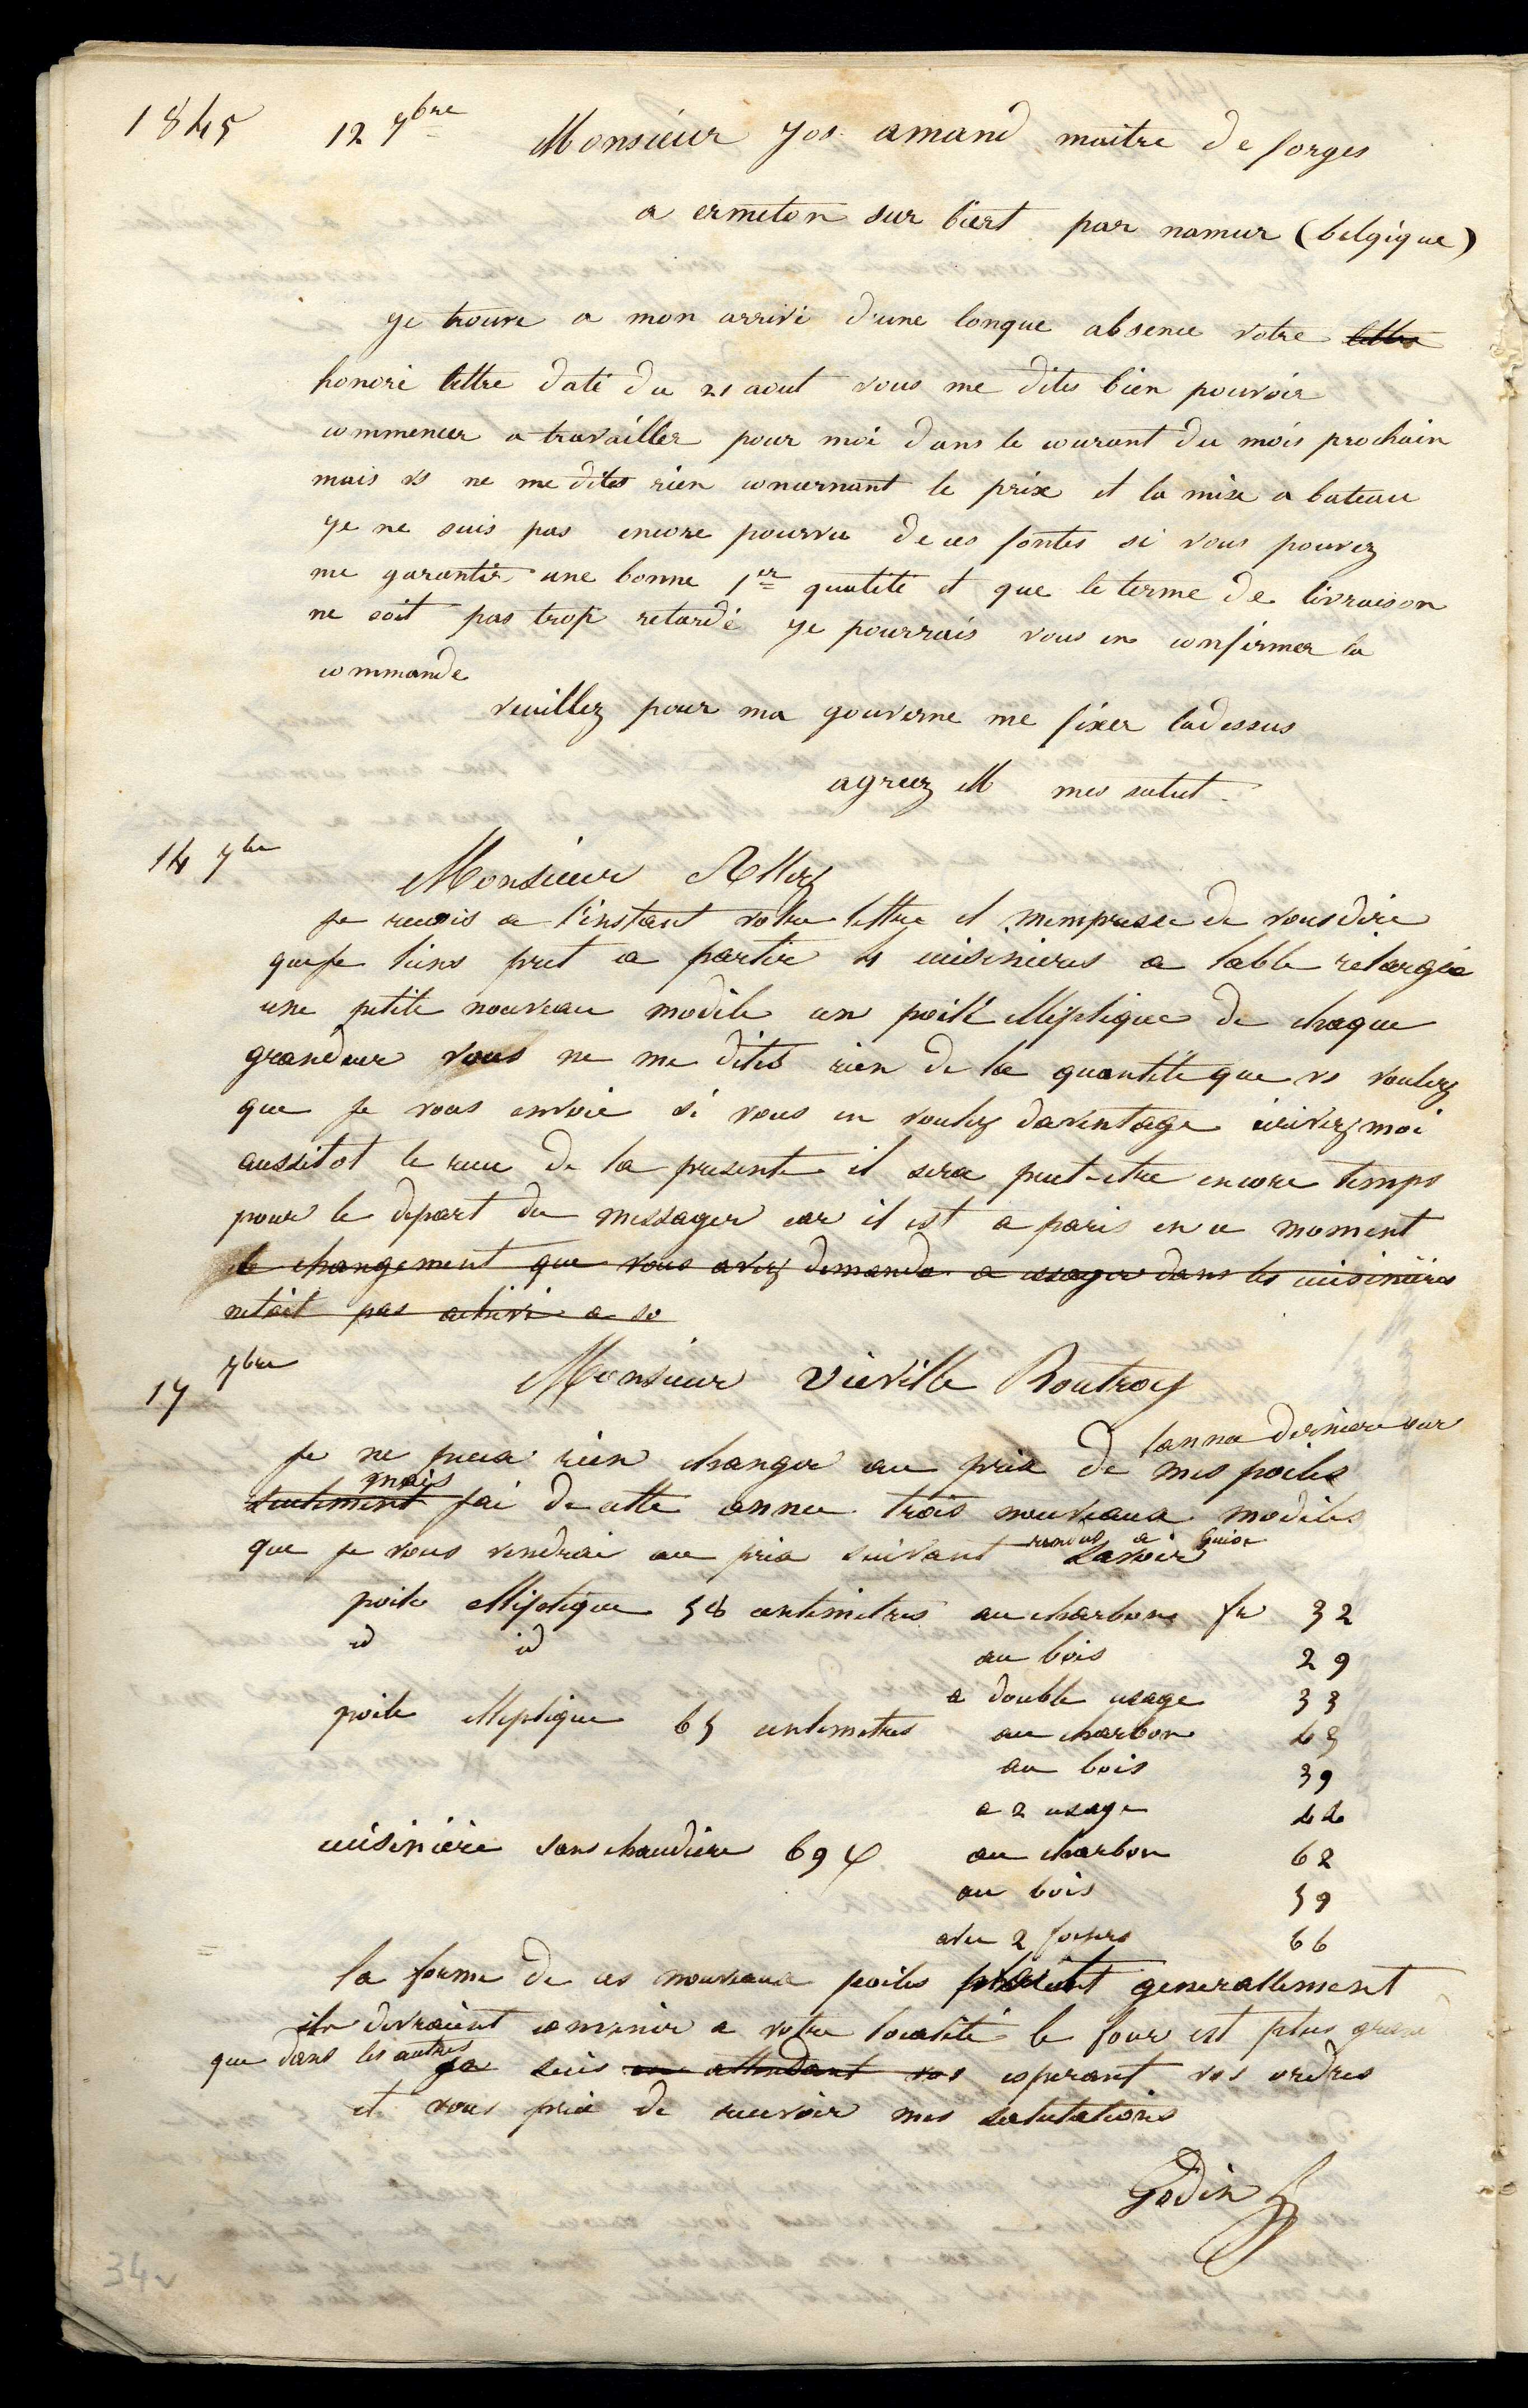 1845 12 7bre Monsieur Jos. amand maitre de forges
a ermeton sur biert par namur (belgique)
je trouve a mon arrivé d'une longue absence votre lettre
honoré lettre daté du 21 aout vous me dites bien pouvoir
commencer a travailler pour moi dans le courant du mois prochain
mais vs ne me dites rien concernant le prix et la mise a bateau
je ne suis pas encore pourvu de ces fontes si vous pouvez
me garantir une bonne 1er qualité et que le terme de livraison
ne soit pas trop retardé je pourrais vous en confirmer la
commande
veuillez pour ma gouverne me fixer ladessus
agreez M mes salut.
14 7bre
Monsieur
je recois a l'instant votre lettre et mempresse de vous dire
que je tiens pret a partir 4 cuisinieres a table relargie
une petite nouveau modele un poile elleptique de chaque
grandeur vous ne me dites rien de la quantité que vs voulez
que je vous envoie si vous en voulez daventage ecrivez moi
aussitot le recu de la presente il sera peut-etre encore temps
pour le depart du messager car il est a paris en ce moment
le changement que vous avez demandé a essayer dans les cuisinieres
netait pas achevé a so
7bre
17 Monsieur Viéville Routroy
lannee derniere sur
je ne puis rien changer au prix de mes poiles
mais
seulement jai de cette annee trois nouveaux modeles
rendus a Guise
que je vous vendrai au prix suivant savoir
poile elleptique 58 centimetres au charbon fr 32
id id au bois 29
a double usage 33
poile elleptique 65 centimetres au charbon 43
au bois 39
a 2 usage 44
cuisinière sans chaudiere 69 au charbon 62
au bois 59
avec 2 foyers 66
la forme de ces nouveaux poiles plaisent generallement
ils devraient convenir a votre localité le four est plus grand
que dans les autres
je suis en attendant vos esperant vos ordres
et vous prie de recevoir mes salutations
Godin
34v